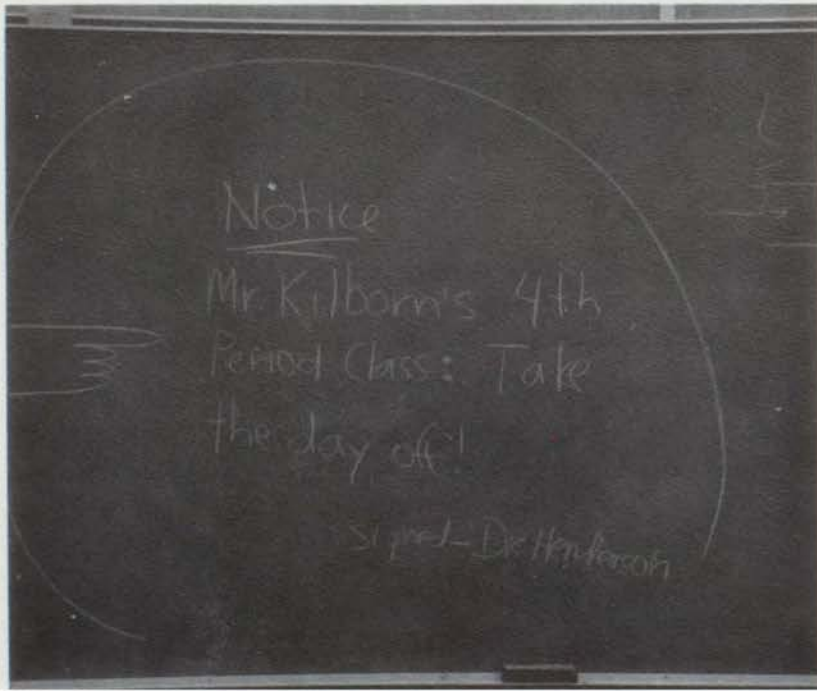 Notice
Mr. Kilborn's 4th
Period Class: Take
the day off!
signed - Dr. Henderson